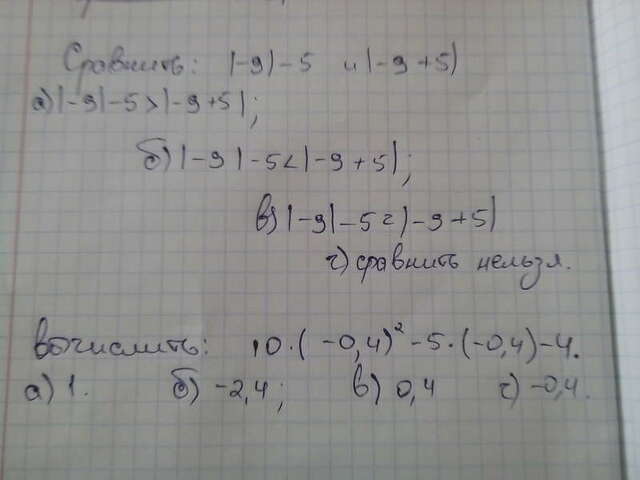 Сравнить: |-9|-5 и |-9+5|
а) |-9|-5>|-9+5|;
б) |-9|-5<|-9+5|;
в) |-9|-5=|-9+5|
г) сравнить нельзя.
Вычислить: 10·(-0,4)²-5·(-0,4)-4.
а) 1. б) -2,4; в) 0,4 г) -0,4.